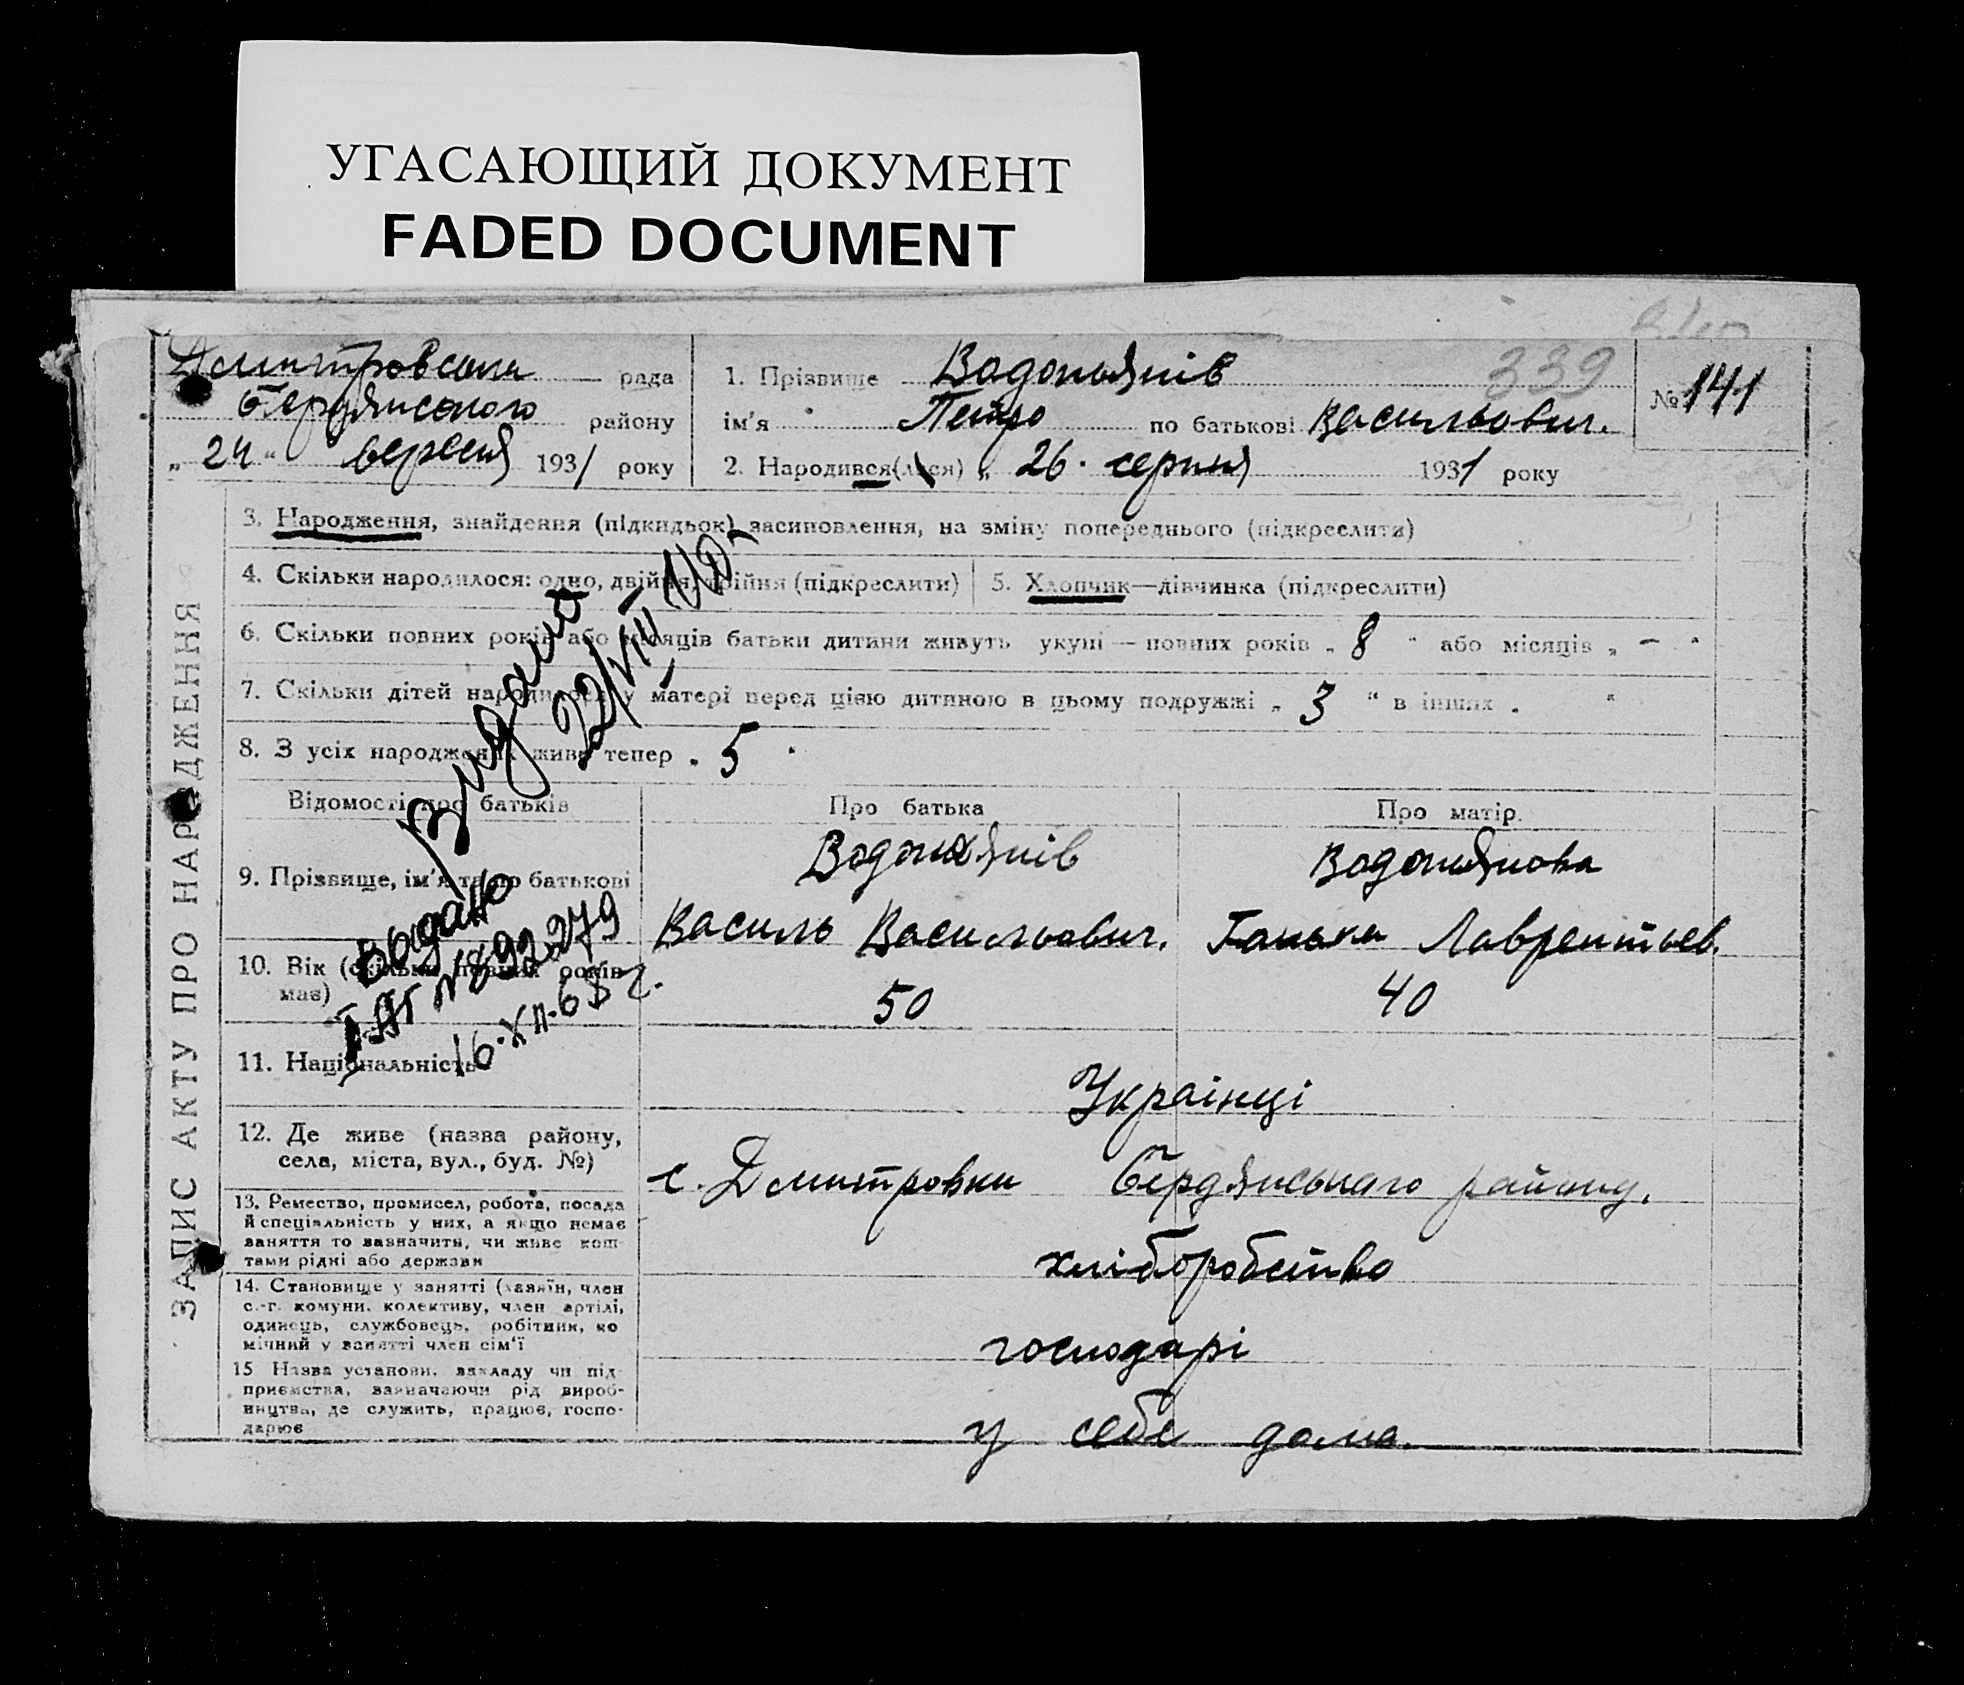 УГАСАЮЩИЙ ДОКУМЕНТ
FADED DOCUMENT
339
Дмитровська рада
Бердянського району
„ 24 “ вересня 1931 року
1. Прізвище Водопьянів
ім'я Петро по батькові Васильович.
2. Народився(лася) „ 26 · серпня 1931 року
№ 141
ЗАПИС АКТУ ПРО НАРОДЖЕННЯ
3. Народження, знайдення (підкидьок) засиновлення, на зміну попереднього (підкреслити)
4. Скільки народилося: одно, двійня, трійня (підкреслити) 5. Хлопчик—дівчинка (підкреслити)
6. Скільки повних років або місяців батьки дитини живуть укупі — повних років „ 8 “ або місяців „ – “
7. Скільки дітей народилося у матері перед цією дитиною в цьому подружжі „ 3 “ в інших „ “
8. З усіх народжених живе тепер „ 5 “
Видано
22/VIII
Відомості про батьків Про батька Про матір
9. Прізвище, ім'я та по батькові
Водопьянів Водопьянова
Василь Васильович. Ганька Лаврентьев.
10. Вік (скільки повних років має) 50 40
Выдано
I-АГ №892279
16·XII·68 г.
11. Національність Украінці
12. Де живе (назва району,
села, міста, вул., буд. №) с. Дмитровки Бердянського району.
13. Ремество, промисел, робота, посада
й спеціяльність у них, а якщо немає
заняття то зазначити, чи живе кош-
тами рідні або держави
хліборобство
14. Становище у занятті (хазяїн, член
с.-г. комуни, колективу, член артілі,
одинець, службовець, робітник, по
мічний у занятті член сім'ї
господарі
15 Назва установи, закладу чи під-
приємства, зазначаючи рід вироб-
ництва, де служить, працює, госпо-
дарює
у себе дома.